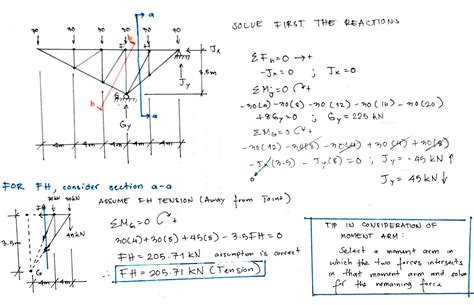 SOLVE FIRST THE REACTIONS
30 30 30 30 30 30
a
b
F H
Jx
3.5m
Jy
b
G
a
Gy
4m 4m 4m 4m 4m
ΣFH=0 →+
-Jx=0 ; Jx=0
ΣMj=0 +
-30(4)-30(8)-30(12)-30(16)-30(20)
+8Gy=0 ; Gy=225 kN
ΣMG=0 +
-30(12)-30(8)-30(4)+30(4)+30(8)
-Jx(3.5)-Jy(8)=0 ; Jy=-45 kN ↑
Jy=45 kN ↓
FOR FH, consider section a-a
ASSUME FH TENSION (Away from Joint)
30kN 30kN
3.5m
45kN
G
4m 4m
ΣMG=0 +
30(4)+30(8)+45(8)-3.5FH=0
FH=205.71 kN assumption is correct
FH=205.71 kN (Tension)
TIP IN CONSIDERATION OF
MOMENT ARM:
Select a moment arm in
which the two forces intersects
in that moment arm and solve
for the remaining force